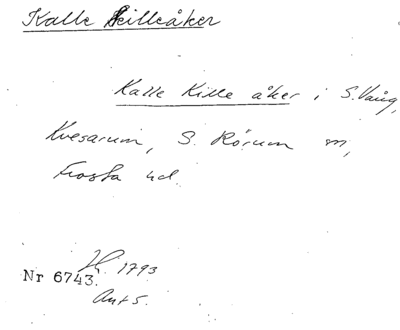 Kalle Killeåker
Kalle Kille åker i S. Vång,
Kvesarum, S. Rörum sn,
Frosta hd.
1793
Nr 6743.
Ant 5.